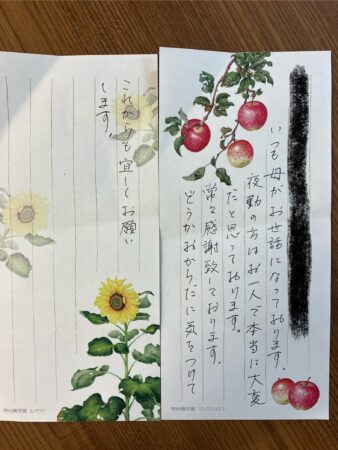 いつも母がお世話になっております。
夜勤の方はお一人で本当に大変
だと思っております。
常々感謝致しております。
どうかおからだに気をつけて
これからも宜しくお願い
します。
野村陽子画 ヒマワリ